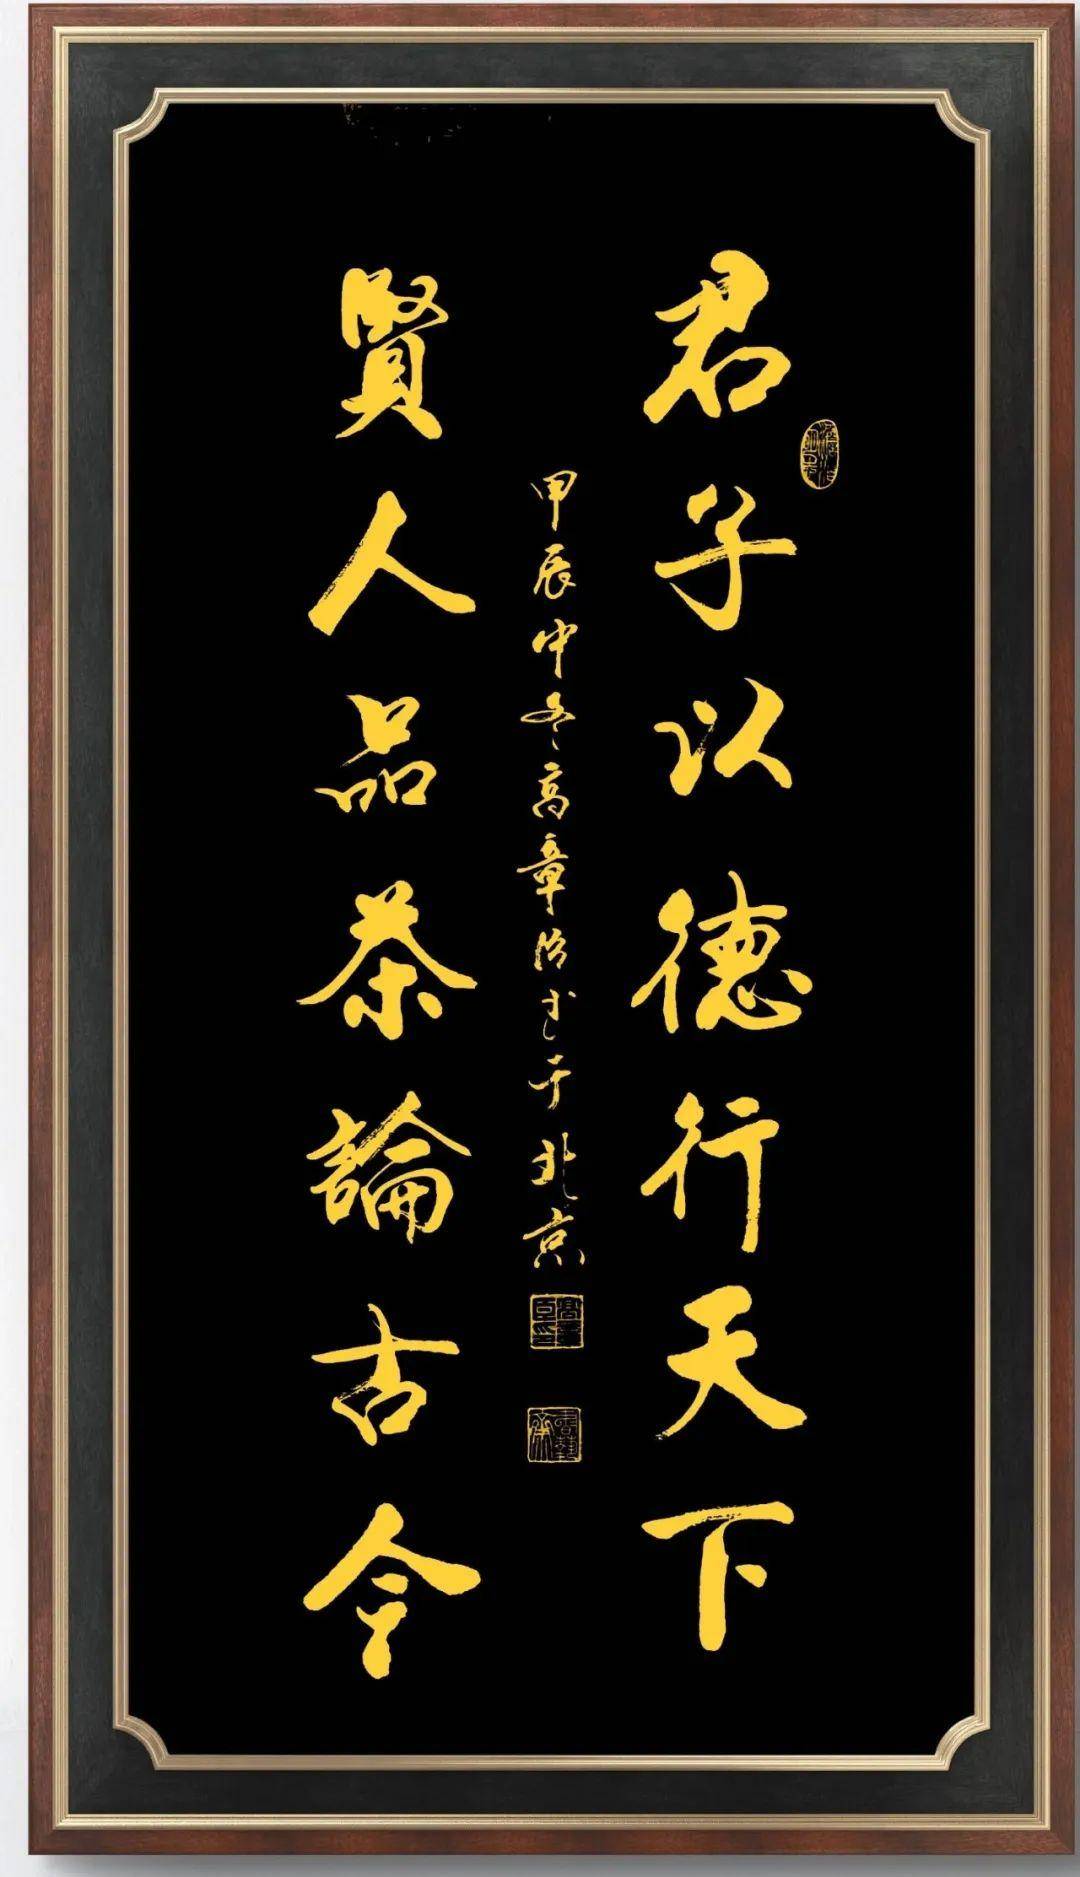 君子以德行天下
賢人品茶論古今
甲辰中冬高章治书于北京